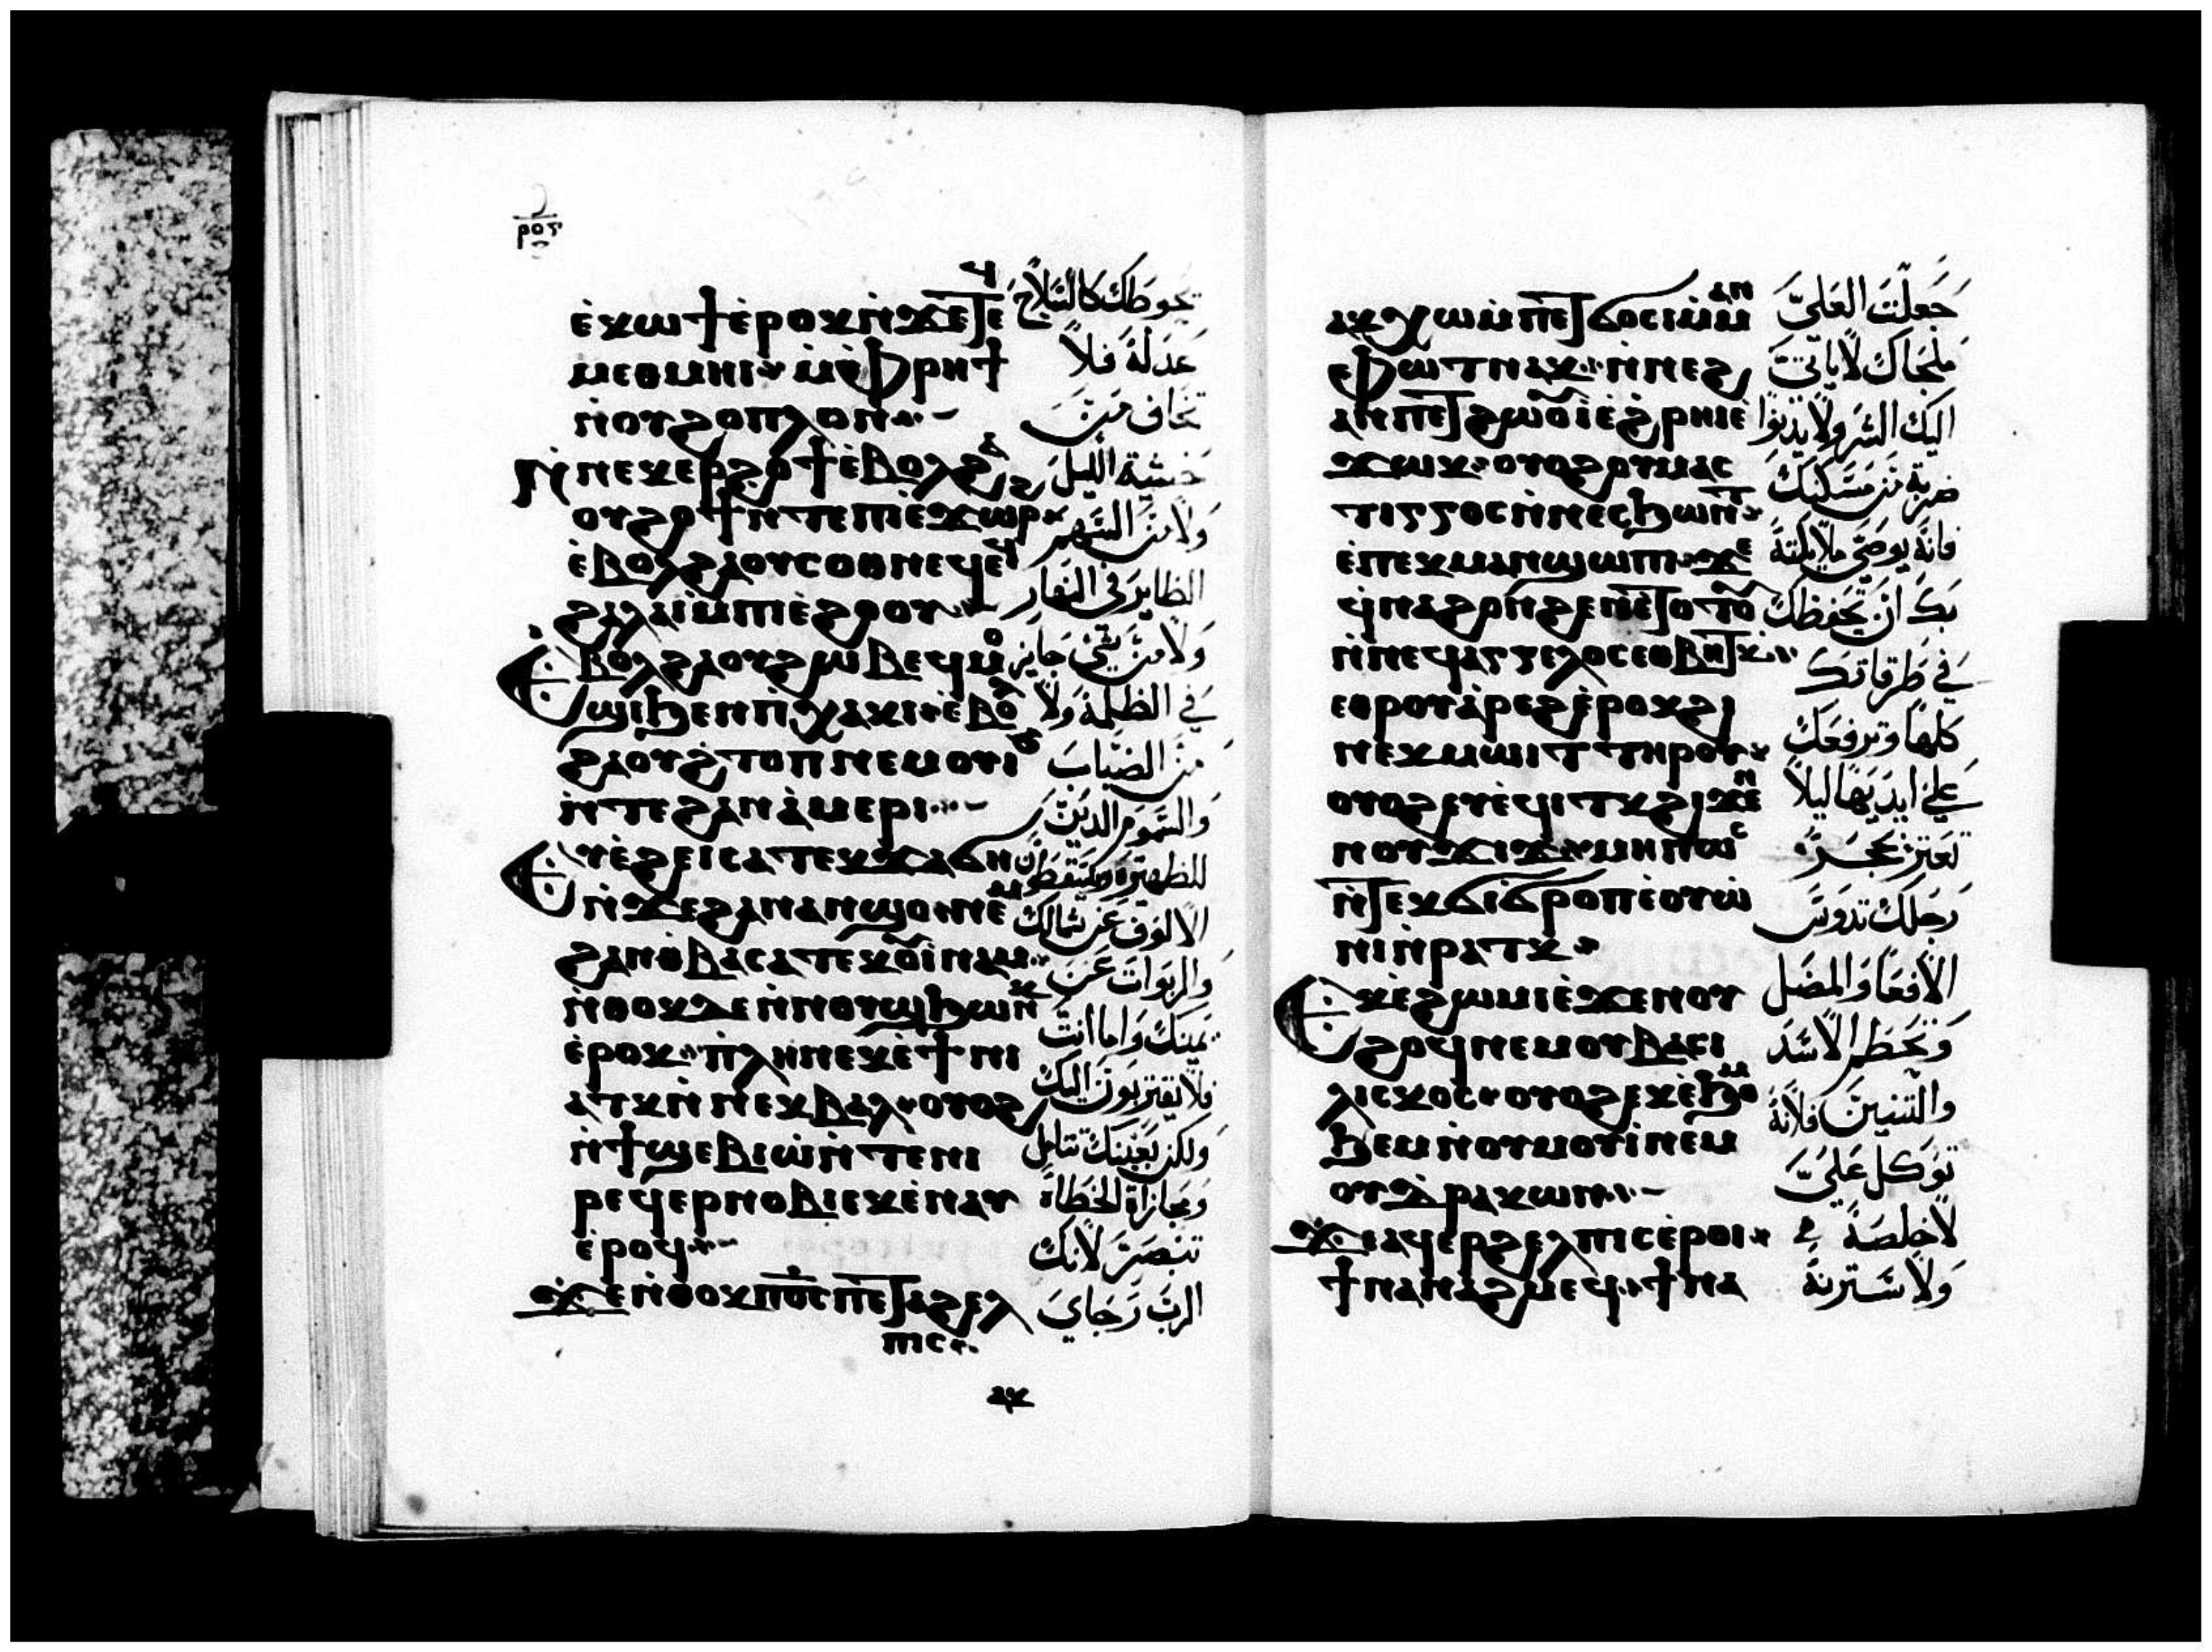 ⲉ̀ⲕⲱϯ ⲉ̀ⲣⲟⲕ ⲛ̀ϫⲉⲧⲉϥ
ⲙⲉⲑⲙⲏⲓ ⲙ̀ⲫⲣⲏϯ
ⲛ̀ⲟⲩϩⲟⲡⲗⲟⲛ
ⲛ̀ⲛⲉⲕⲉⲣϩⲟϯ ⲉ̀ⲃⲟⲗϩⲁ
ⲟⲩϩⲟϯ ⲛ̀ⲧⲉⲡⲓⲉ̀ϫⲱⲣϩ
ⲉ̀ⲃⲟⲗϩⲁ ⲟⲩⲥⲟⲑⲛⲉϥ ⲉ̀ϥ
ϩⲁⲗⲁⲓ ⲙ̀ⲡⲓⲉ̀ϩⲟⲟⲩ
Ⲉⲃⲟⲗϩⲁ ⲟⲩϩⲱⲃ ⲉϥⲙⲟ
ϣⲓ ϧⲉⲛⲡⲓⲭⲁⲕⲓ ⲉ̀ⲃⲟⲗ
ϩⲁⲟⲩϩ̀ⲧⲟⲡ ⲛⲉⲙⲟⲩⲓϧ
ⲛ̀ⲧⲉϩⲁⲛⲁ̀ⲙⲉⲣⲓ
Ⲉⲩⲉ̀ϩⲉⲓ ⲥⲁⲧⲉⲕϫⲁϭⲏ
ⲛ̀ϫⲉϩⲁⲛⲁⲛϣⲟ ⲛⲉⲙ
ϩⲁⲛⲑ̀ⲃⲁ ⲥⲁⲧⲉⲕⲟⲩⲓⲛⲁⲙ
ⲛ̀ⲑⲟⲕⲇⲉ ⲛ̀ⲛⲟⲩϣϧⲱⲛⲧⲕ
ⲉ̀ⲣⲟⲕ ⲡ̀ⲗⲏⲛ ⲛⲉⲕⲉ̀ϯ ⲛⲓ
ⲁⲧⲕ ⲛ̀ⲛⲉⲕⲃⲁⲗ ⲟⲩⲟϩ
ⲛ̀ϯϣⲉⲃⲓⲱ̀ ⲛ̀ⲧⲉⲛⲓ
ⲣⲉϥⲉⲣⲛⲟⲃⲓ ⲉⲕⲉ̀ⲛⲁⲩ
ⲉ̀ⲣⲟϥ
ϫⲉⲛ̀ⲑⲟⲕ ⲡⲟ̅ⲥ̅ ⲡⲉⲧⲁϩⲉⲗ
ⲡⲓⲥ
ⲁⲕ
تحوطك كالسلاح
عدله فلا
تخاف من
خشية الليل
ولا من السهم
الطاير في النهار
ولا من شي جايز
في الظلمة ولا
من الضباب
والسموم الدين
للظهيرة ويسقطون
الالوف عن شمالك
والربوات عن
يمينك واما انت
فلا يقتربون اليك
ولكن بعينك تتامل
ومجازاة الخطاه
تبصر لانك
الرب رجاي
ⲁⲕⲭⲱ ⲙ̀ⲡⲉⲧϭⲟⲥⲓ ⲙ̀ⲙⲁⲛ
ⲉ̀ⲫⲱⲧ ⲛⲁⲕ ⲛ̀ⲛⲉϩ
ⲁⲛⲡⲉⲧϩⲱⲟⲩ ⲓ̀ ⲉ̀ϩⲣⲏⲓ ⲉ̀
ϫⲱⲕ ⲟⲩⲟϩ ⲟⲩⲙⲁⲥ
ⲧⲓⲅⲅⲟⲥ ⲛ̀ⲛⲉⲥϧⲱⲛⲧ
ⲉ̀ⲡⲉⲕⲙⲁⲛϣⲱⲡⲓ ϫⲉ
ϥⲛⲁϩⲟⲛϩⲉⲛ ⲉⲧⲟⲧⲟⲩ
ⲛ̀ⲛⲉϥⲁⲅⲅⲉⲗⲟⲥ ⲉⲑⲃⲏⲧⲕ
ⲉⲑⲣⲟⲩⲁ̀ⲣⲉϩ ⲉ̀ⲣⲟⲕ ϩⲓ
ⲛⲉⲕⲙⲱⲓⲧ ⲧⲏⲣⲟⲩ
ⲟⲩⲟϩ ⲉⲩⲉ̀ϥⲓⲧⲕ ϩⲓϫⲉⲛ
ⲛⲟⲩϫⲓϫ ⲙⲏⲡⲱⲥ
ⲛ̀ⲧⲉⲕϭⲓϭⲣⲟⲡ ⲉ̀ⲟⲩⲱ̀
ⲛⲓ ⲛ̀ⲣⲁⲧⲕ
Ⲉⲕⲉ̀ϩⲱⲙⲓ ⲉ̀ϫⲉⲛ ⲟⲩ
ϩⲟϥ ⲛⲉⲙ ⲟⲩⲃⲁⲥⲓ
ⲗⲓⲥⲕⲟⲥ ⲟⲩⲟϩ ⲉⲕⲉ̀ϧⲟⲙ
ϧⲉⲙ ⲛ̀ⲟⲩⲙⲟⲩⲓ̀ ⲛⲉⲙ
ⲟⲩⲇ̀ⲣⲁⲕⲱⲛ
ϫⲉⲁϥⲉⲣϩⲉⲗⲡⲓⲥ ⲉ̀ⲣⲟⲓ
ϯⲛⲁⲛⲁϩⲙⲉϥ ϯⲛⲁ
جعلت العلي
ملجاك لا ياتي
اليك الشر ولا يدنوا
ضربة من مسكنك
فانه يوصي ملايكته
بك ان تحفظك
في طرقاتك
كلها وترفعك
علي ايديها ليلا
تعتر بحجر
رجلك تدوس
الافعا
وتحطم الاسد
والتنين فلانه
توكل علي
لاخلصه
ولاسترنه